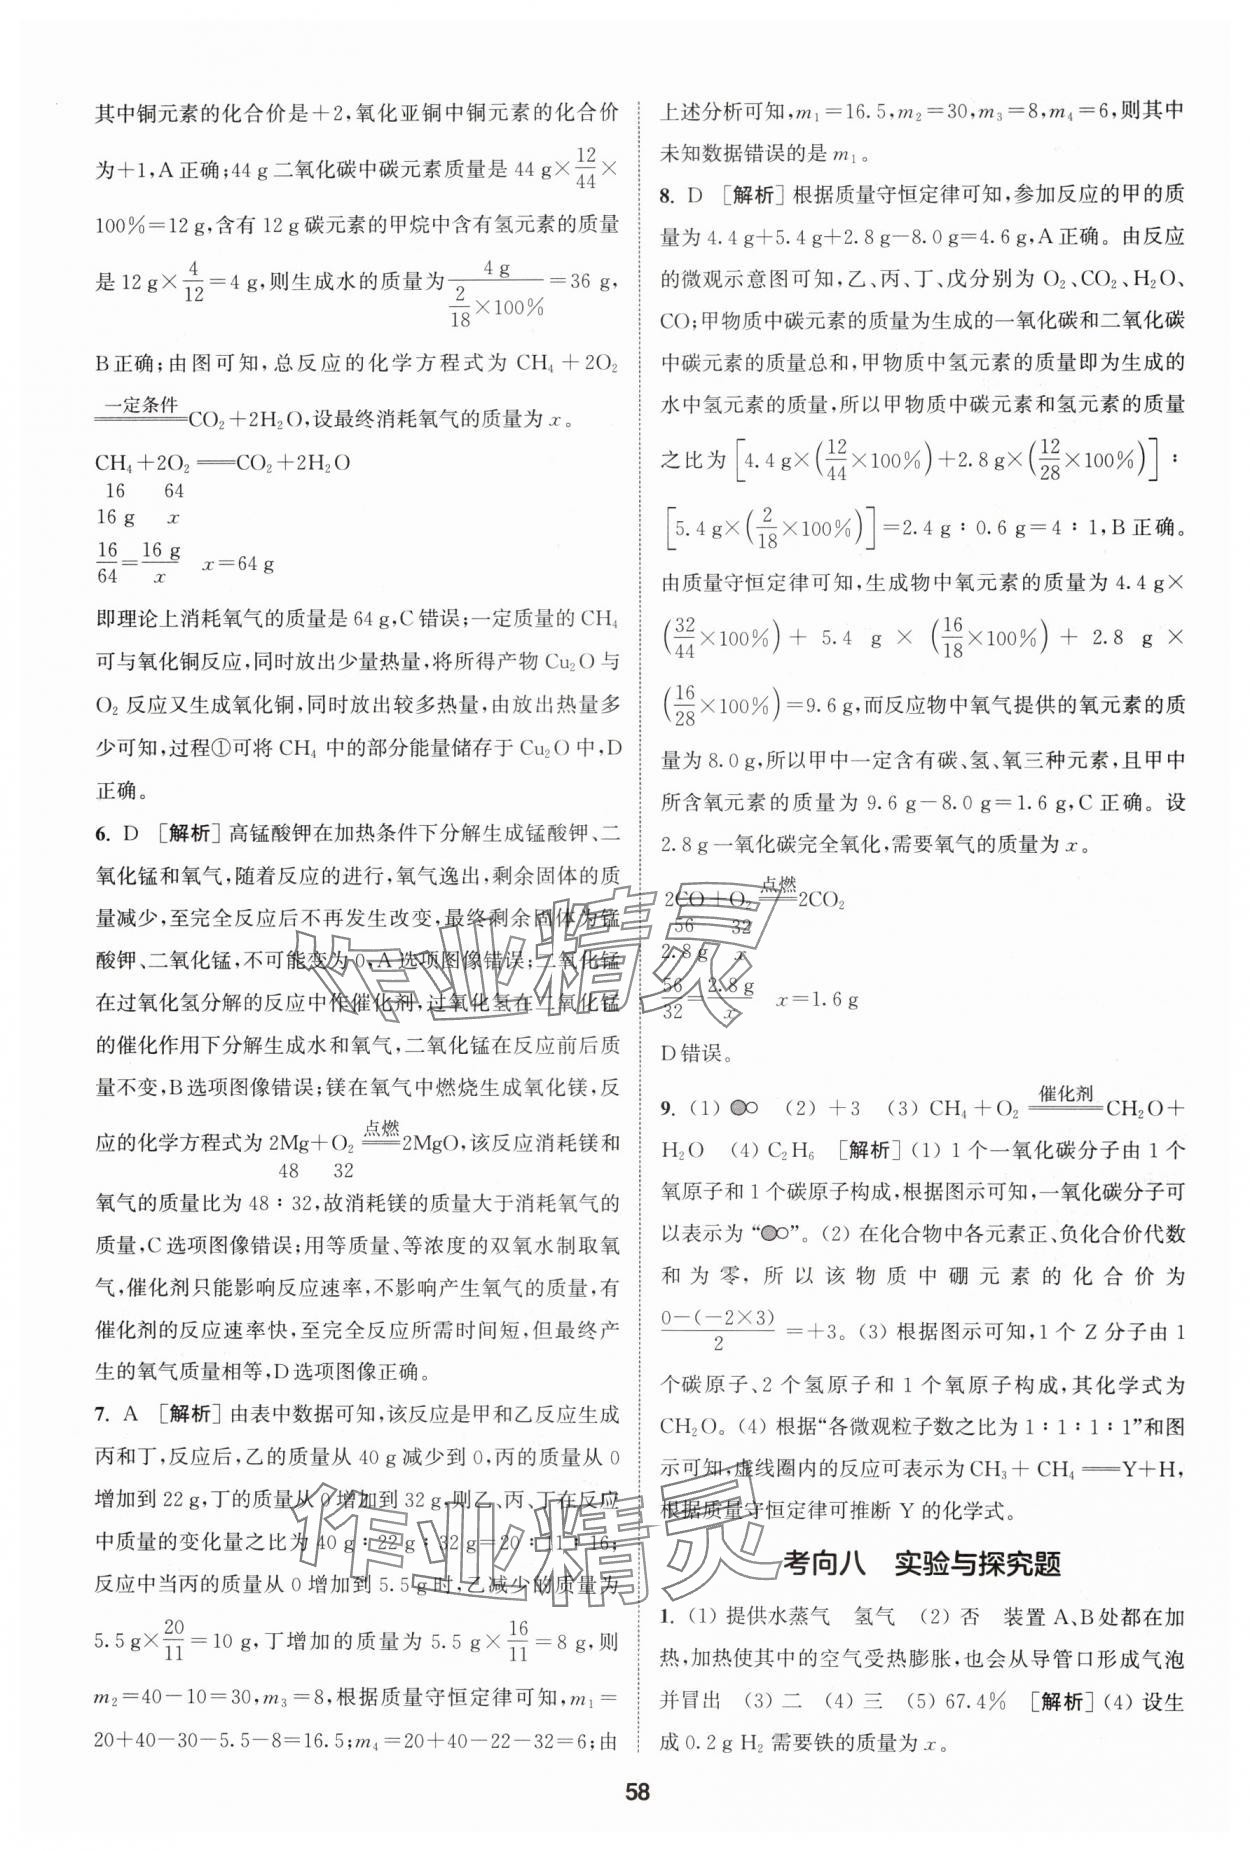 其中铜元素的化合价是+2,氧化亚铜中铜元素的化合价
为+1,A 正确;44 g 二氧化碳中碳元素质量是 44 g×12/44×
100%=12 g,含有 12 g 碳元素的甲烷中含有氢元素的质量
是 12 g×4/12=4 g,则生成水的质量为 4 g/(2/18×100%)=36 g,
B 正确;由图可知,总反应的化学方程式为 CH₄+2O₂
一定条件
══CO₂+2H₂O,设最终消耗氧气的质量为 x。
CH₄+2O₂══CO₂+2H₂O
16 64
16 g x
16/64=16 g/x x=64 g
即理论上消耗氧气的质量是 64 g,C 错误;一定质量的 CH₄
可与氧化铜反应,同时放出少量热量,将所得产物 Cu₂O 与
O₂ 反应又生成氧化铜,同时放出较多热量,由放出热量多
少可知,过程①可将 CH₄ 中的部分能量储存于 Cu₂O 中,D
正确。
6. D [解析] 高锰酸钾在加热条件下分解生成锰酸钾、二
氧化锰和氧气,随着反应的进行,氧气逸出,剩余固体的质
量减少,至完全反应后不再发生改变,最终剩余固体为锰
酸钾、二氧化锰,不可能变为 0,A 选项图像错误;二氧化锰
在过氧化氢分解的反应中作催化剂,过氧化氢在二氧化锰
的催化作用下分解生成水和氧气,二氧化锰在反应前后质
量不变,B 选项图像错误;镁在氧气中燃烧生成氧化镁,反
应的化学方程式为 2Mg+O₂ 点燃══2MgO,该反应消耗镁和
48 32
氧气的质量比为 48∶32,故消耗镁的质量大于消耗氧气的
质量,C 选项图像错误;用等质量、等浓度的双氧水制取氧
气,催化剂只能影响反应速率,不影响产生氧气的质量,有
催化剂的反应速率快,至完全反应所需时间短,但最终产
生的氧气质量相等,D 选项图像正确。
7. A [解析] 由表中数据可知,该反应是甲和乙反应生成
丙和丁,反应后,乙的质量从 40 g 减少到 0,丙的质量从 0
增加到 22 g,丁的质量从 0 增加到 32 g,则乙、丙、丁在反应
中质量的变化量之比为 40 g∶22 g∶32 g=20∶11∶16;
反应中当丙的质量从 0 增加到 5.5 g 时,乙减少的质量为
5.5 g×20/11=10 g,丁增加的质量为 5.5 g×16/11=8 g,则
m₂=40−10=30,m₃=8,根据质量守恒定律可知,m₁=
20+40−30−5.5−8=16.5;m₄=20+40−22−32=6;由
上述分析可知,m₁=16.5,m₂=30,m₃=8,m₄=6,则其中
未知数据错误的是 m₁。
8. D [解析] 根据质量守恒定律可知,参加反应的甲的质
量为 4.4 g+5.4 g+2.8 g−8.0 g=4.6 g,A 正确。由反应
的微观示意图可知,乙、丙、丁、戊分别为 O₂、CO₂、H₂O、
CO;甲物质中碳元素的质量为生成的一氧化碳和二氧化碳
中碳元素的质量总和,甲物质中氢元素的质量即为生成的
水中氢元素的质量,所以甲物质中碳元素和氢元素的质量
之比为 [4.4 g×(12/44×100%)+2.8 g×(12/28×100%)]∶
[5.4 g×(2/18×100%)]=2.4 g∶0.6 g=4∶1,B 正确。
由质量守恒定律可知,生成物中氧元素的质量为 4.4 g×
(32/44×100%)+5.4 g×(16/18×100%)+2.8 g×
(16/28×100%)=9.6 g,而反应物中氧气提供的氧元素的质
量为 8.0 g,所以甲中一定含有碳、氢、氧三种元素,且甲中
所含氧元素的质量为 9.6 g−8.0 g=1.6 g,C 正确。设
2.8 g 一氧化碳完全氧化,需要氧气的质量为 x。
2CO+O₂ 点燃══2CO₂
56 32
2.8 g x
56/32=2.8 g/x x=1.6 g
D 错误。
9. (1) (2) +3 (3) CH₄+O₂ 催化剂══CH₂O+
H₂O (4) C₂H₆ [解析] (1) 1 个一氧化碳分子由 1 个
氧原子和 1 个碳原子构成,根据图示可知,一氧化碳分子可
以表示为“”。(2) 在化合物中各元素正、负化合价代数
和为零,所以该物质中硼元素的化合价为
0−(−2×3)/2=+3。(3) 根据图示可知,1 个 Z 分子由 1
个碳原子、2 个氢原子和 1 个氧原子构成,其化学式为
CH₂O。(4) 根据“各微观粒子数之比为 1∶1∶1∶1”和图
示可知,虚线圈内的反应可表示为 CH₃+CH₄══Y+H,
根据质量守恒定律可推断 Y 的化学式。
考向八 实验与探究题
1. (1) 提供水蒸气 氢气 (2) 否 装置 A、B 处都在加
热,加热使其中的空气受热膨胀,也会从导管口形成气泡
并冒出 (3) 二 (4) 三 (5) 67.4% [解析] (4) 设生
成 0.2 g H₂ 需要铁的质量为 x。
58
作业精灵
作业精灵